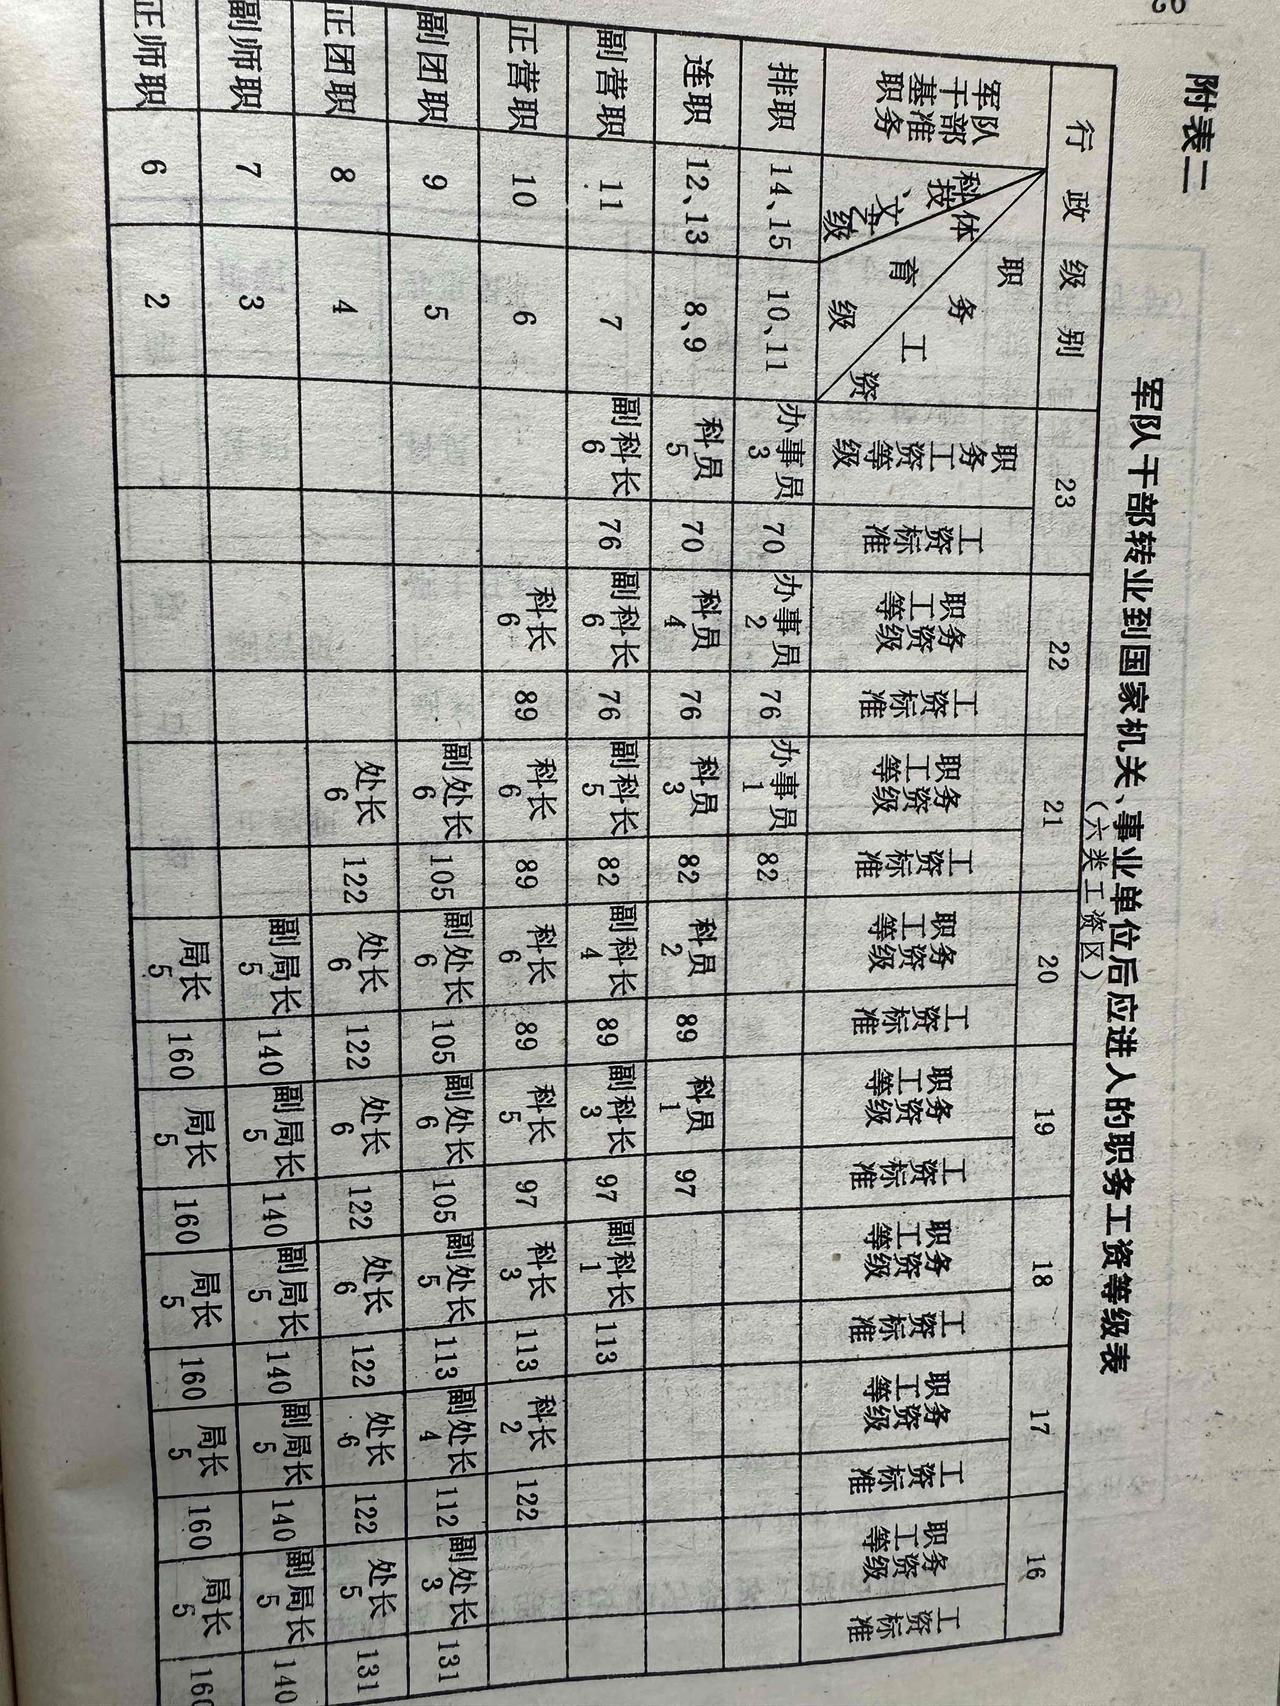 附表二
军队干部转业到国家机关、事业单位后应进入的职务工资等级表
（六类工资区）
行政级别 23 22 21 20 19 18 17 16
军队干部基准职务 科技级 文艺级 体育级 职务工资 职务工资等级 工资标准 职务工资等级 工资标准 职务工资等级 工资标准 职务工资等级 工资标准 职务工资等级 工资标准 职务工资等级 工资标准 职务工资等级 工资标准 职务工资等级 工资标准
排职 14、15 10、11 办事员3 70 办事员2 76 办事员1 82
连职 12、13 8、9 科员5 70 科员4 76 科员3 82 科员2 89 科员1 97
副营职 11 7 副科长6 76 副科长6 76 副科长5 82 副科长4 89 副科长3 97 副科长1 113
正营职 10 6 科长6 89 科长6 89 科长6 89 科长5 97 科长3 113 科长2 122
副团职 9 5 副处长6 105 副处长6 105 副处长6 105 副处长5 113 副处长4 112 副处长3 131
正团职 8 4 处长6 122 处长6 122 处长6 122 处长6 122 处长6 122 处长5 131
副师职 7 3 副局长5 140 副局长5 140 副局长5 140 副局长5 140 副局长5 140
正师职 6 2 局长5 160 局长5 160 局长5 160 局长5 160 局长5 160